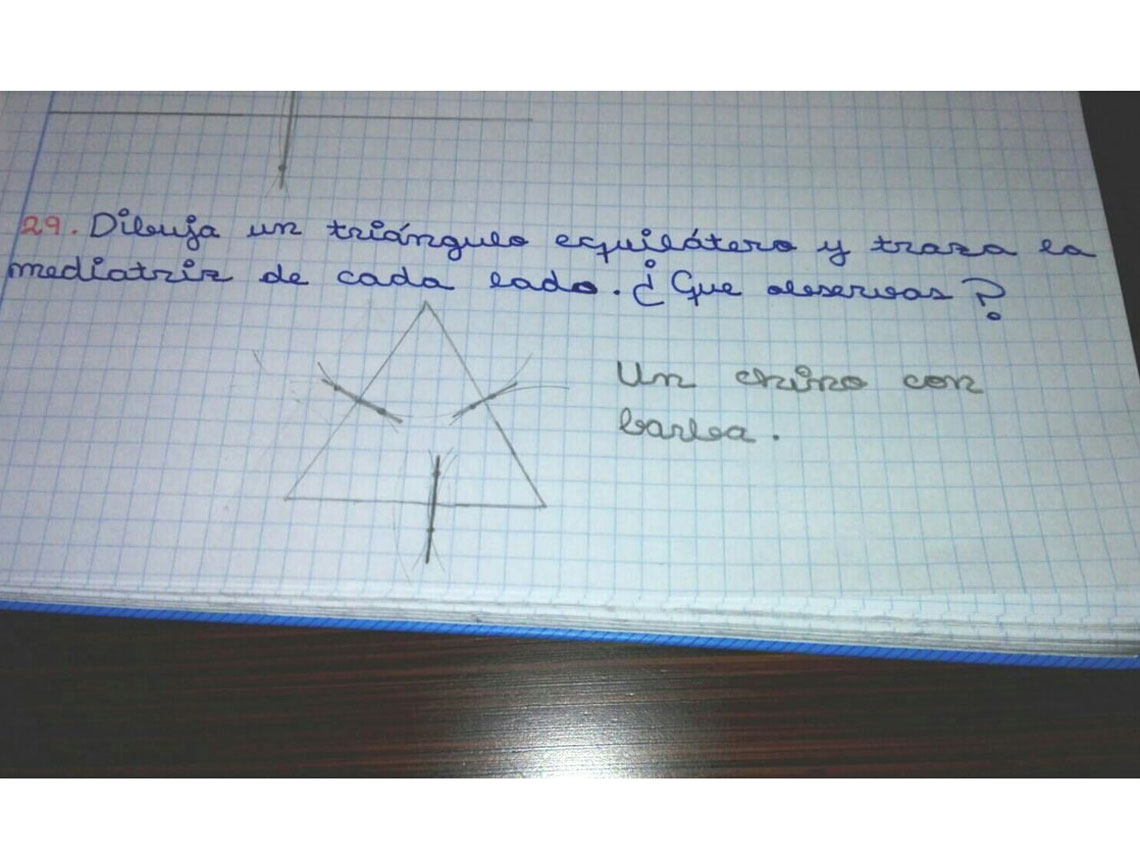 29. Dibuja un triángulo equilátero y traza la
mediatriz de cada lado. ¿Que observas?
Un chino con
barba.